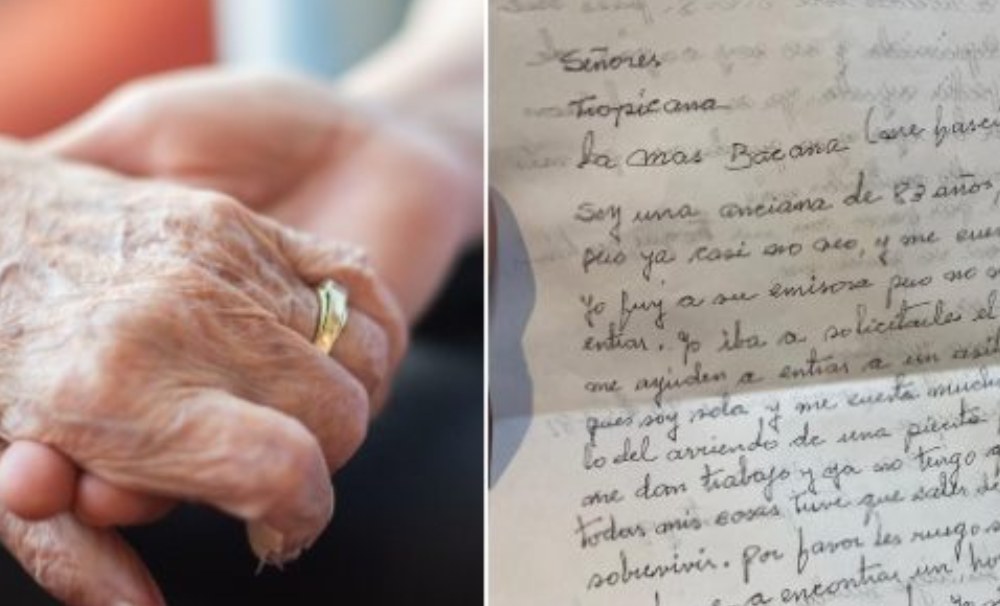 Señores
Tropicana
La mas Bacana
Soy una anciana de 83 años,
pero ya casi no veo, y me
yo fuy a su emisora pero no
entrar. yo iba a solicitarles el
me ayuden a entrar a un
pues soy sola y me cuesta
lo del arriendo de una piecita
me dan trabajo y ya no tengo
todas mis cosas tuve que
sobrevivir. por favor les ruego
a encontrar un